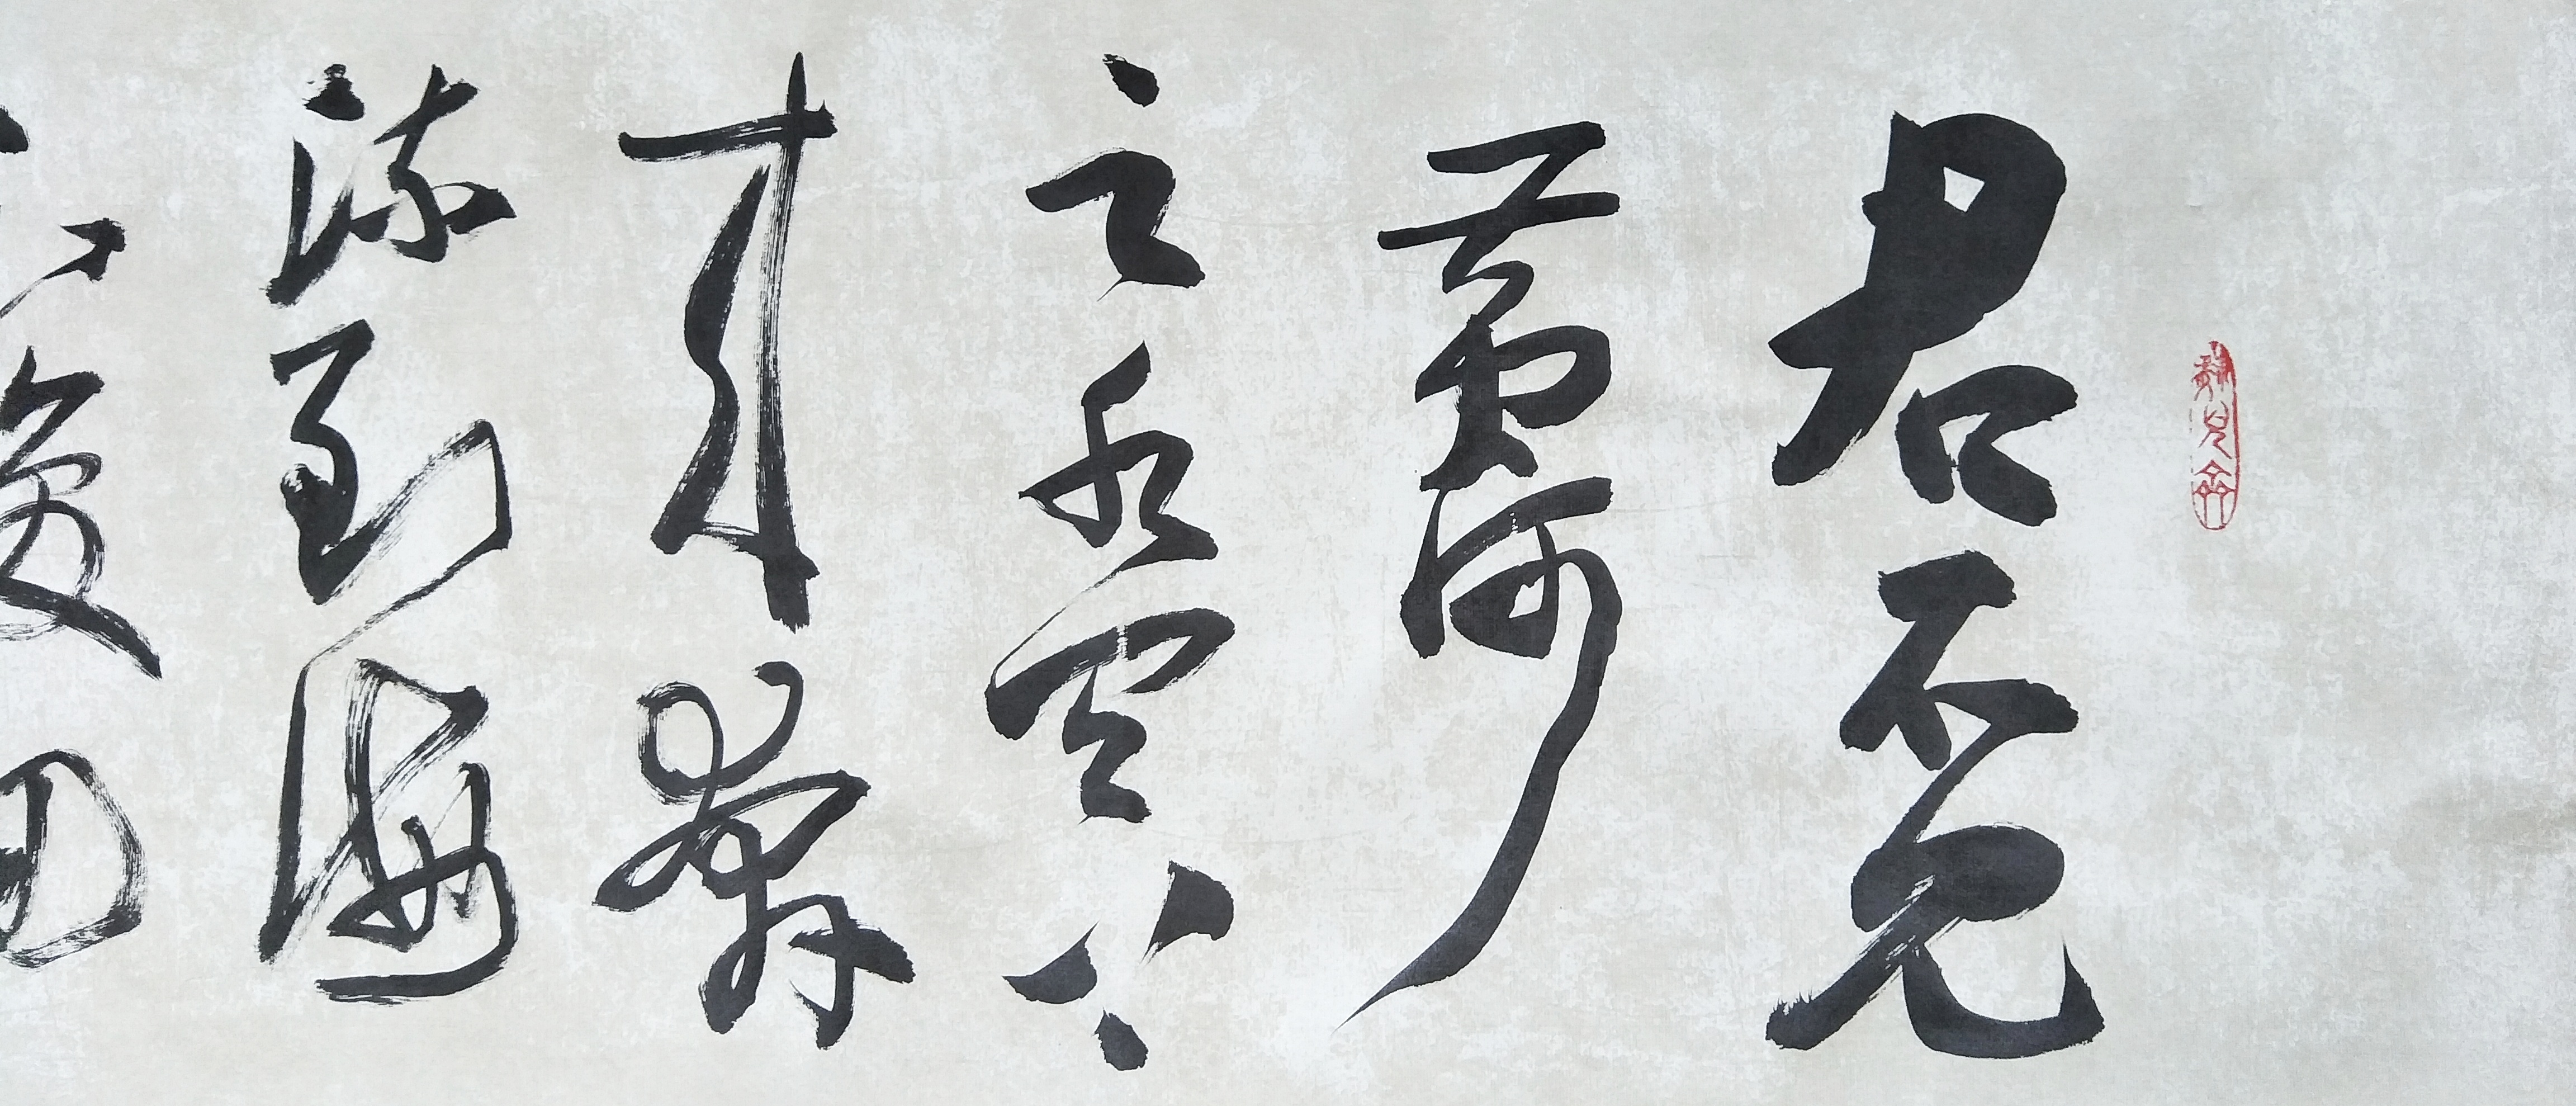 君不见
黄河
之水天上
来奔
流到海
不复回